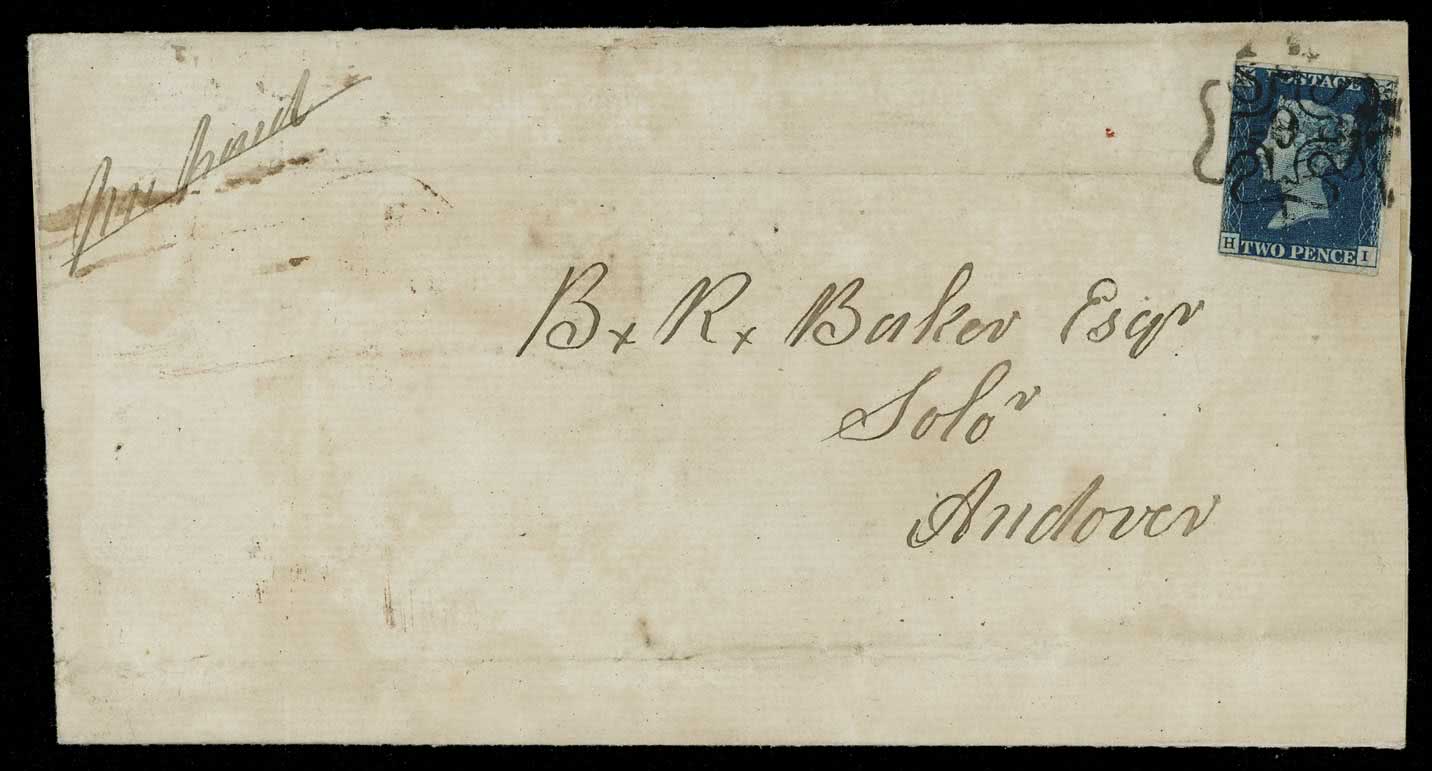 Pre paid
POSTAGE
9
H TWO PENCE I
B x R x Baker Esqr
Solor
Andover